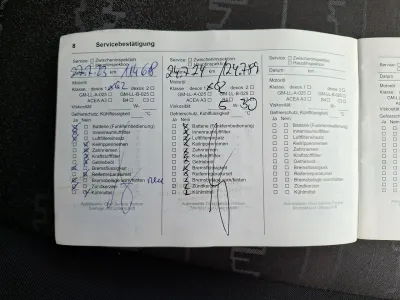 8 Servicebestätigung
Service: Zwischeninspektion
Hauptinspektion
Datum km
Motoröl
dexos 1 dexos 2
GM-LL-A-025 GM-LL-B-025
ACEA A3 B4 C3
Viskosität W-
Gefrierschutz, Kühlflüssigkeit °C
Ja Nein
Batterie (Funkfernbedienung)
Innenraumluftfilter
Luftfiltereinsatz
Keilrippenriemen
Zahnriemen
Kraftstofffilter
Getriebeöl
Bremsflüssigkeit
Reifenreparaturset
Bremsbeläge vorn/hinten neu
Zündkerzen
Kühlmittel
Service: Zwischeninspektion
Hauptinspektion
24.7.24 km 124.789
Motoröl
dexos 2
GM-LL-A-025 GM-LL-B-025
ACEA A3 B4 C3
Viskosität 5 W- 30
Gefrierschutz, Kühlflüssigkeit °C
Ja Nein
Batterie (Funkfernbedienung)
Innenraumluftfilter
Luftfiltereinsatz
Keilrippenriemen
Zahnriemen
Kraftstofffilter
Getriebeöl
Bremsflüssigkeit
Reifenreparaturset
Bremsbeläge vorn/hinten
Zündkerzen
Kühlmittel
Service: Zwischeninspektion
Hauptinspektion
Datum km
Motoröl
dexos 1 dexos 2
GM-LL-A-025 GM-LL-B-025
ACEA A3 B4 C3
Viskosität W-
Gefrierschutz, Kühlflüssigkeit °C
Ja Nein
Batterie (Funkfernbedienung)
Innenraumluftfilter
Luftfiltereinsatz
Keilrippenriemen
Zahnriemen
Kraftstofffilter
Getriebeöl
Bremsflüssigkeit
Reifenreparaturset
Bremsbeläge vorn/hinten
Zündkerzen
Kühlmittel